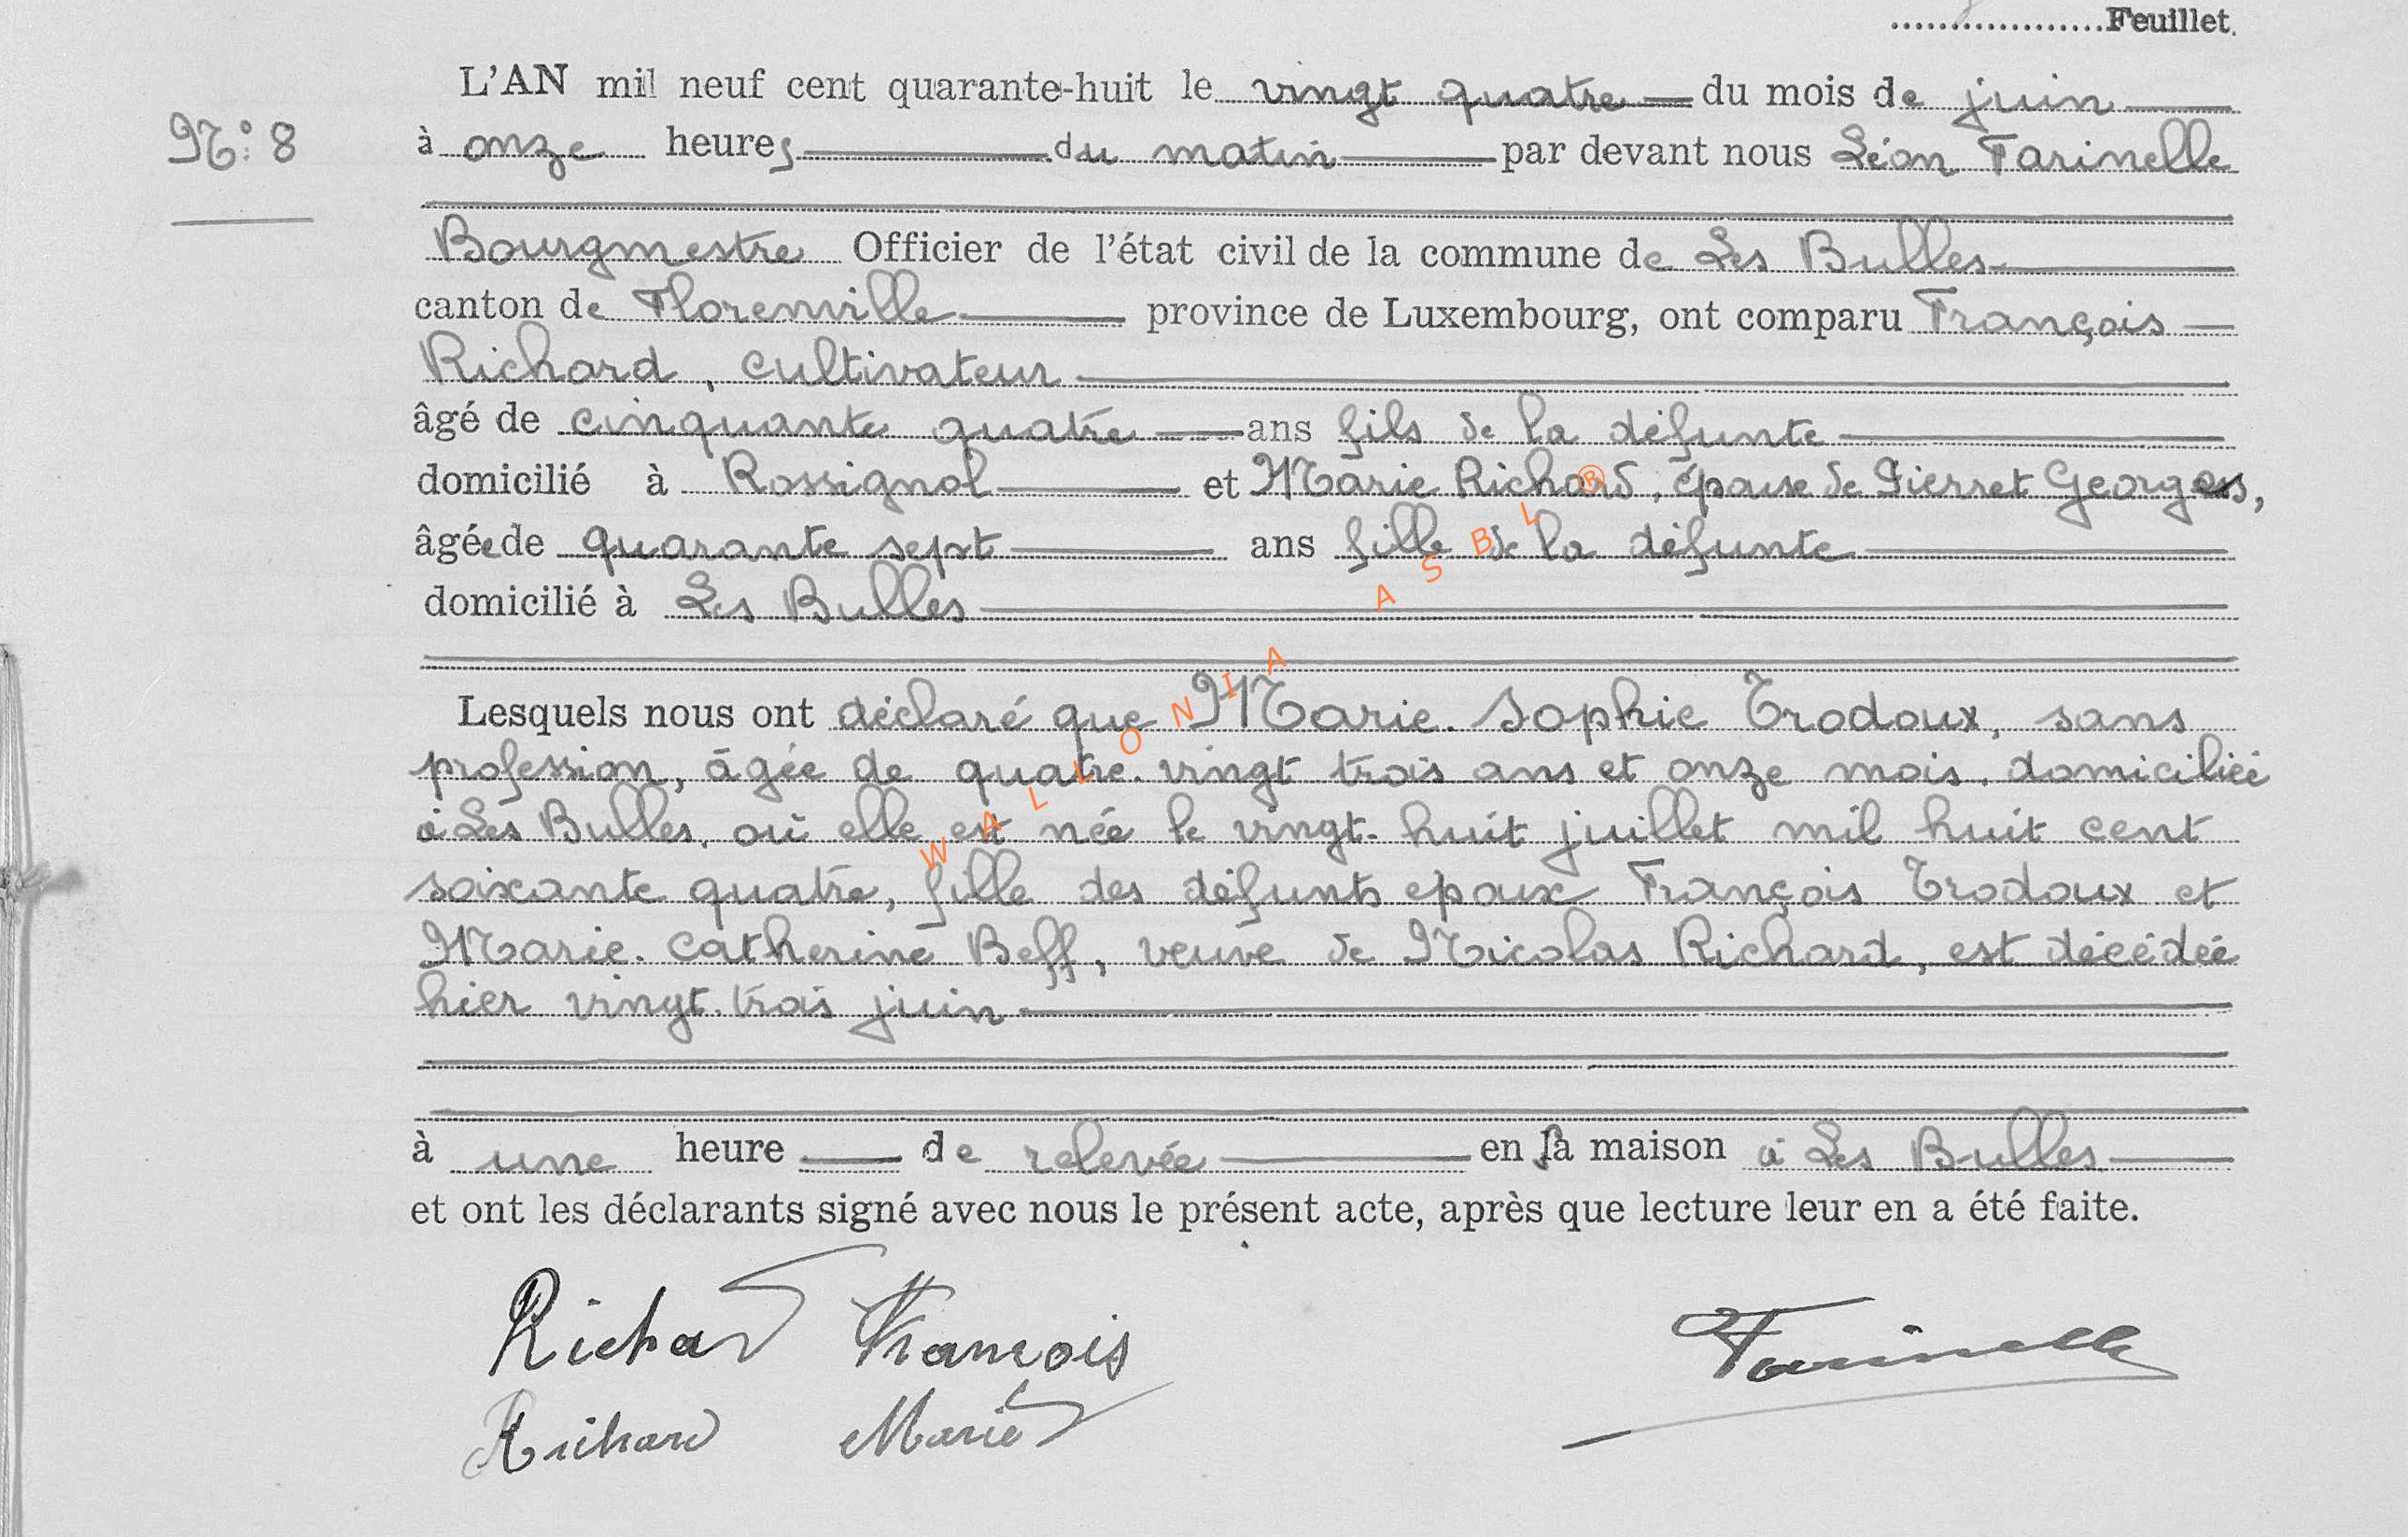 Feuillet.
L'AN mil neuf cent quarante-huit le vingt quatre du mois de juin
N° 8
à onze heures du matin par devant nous Léon Farinelle
Bourgmestre Officier de l'état civil de la commune de Les Bulles
canton de Florenville province de Luxembourg, ont comparu François
Richard, cultivateur
âgé de cinquante quatre ans fils de la défunte
domicilié à Rossignol et Marie Richard, épouse de Pierret Georges,
âgée de quarante sept ans fille de la défunte
domicilié à Les Bulles
Lesquels nous ont déclaré que Marie-Sophie Trodoux, sans
profession, âgée de quatre-vingt trois ans et onze mois, domiciliée
à Les Bulles, où elle est née le vingt-huit juillet mil huit cent
soixante quatre, fille des défunts epoux François Trodoux et
Marie-Catherine Beff, veuve de Nicolas Richard, est décédée
hier vingt-trois juin
à une heure de relevée en sa maison à Les Bulles
et ont les déclarants signé avec nous le présent acte, après que lecture leur en a été faite.
Richard François
Farinelle
Richard Marie
WALLONIA ASBL ®